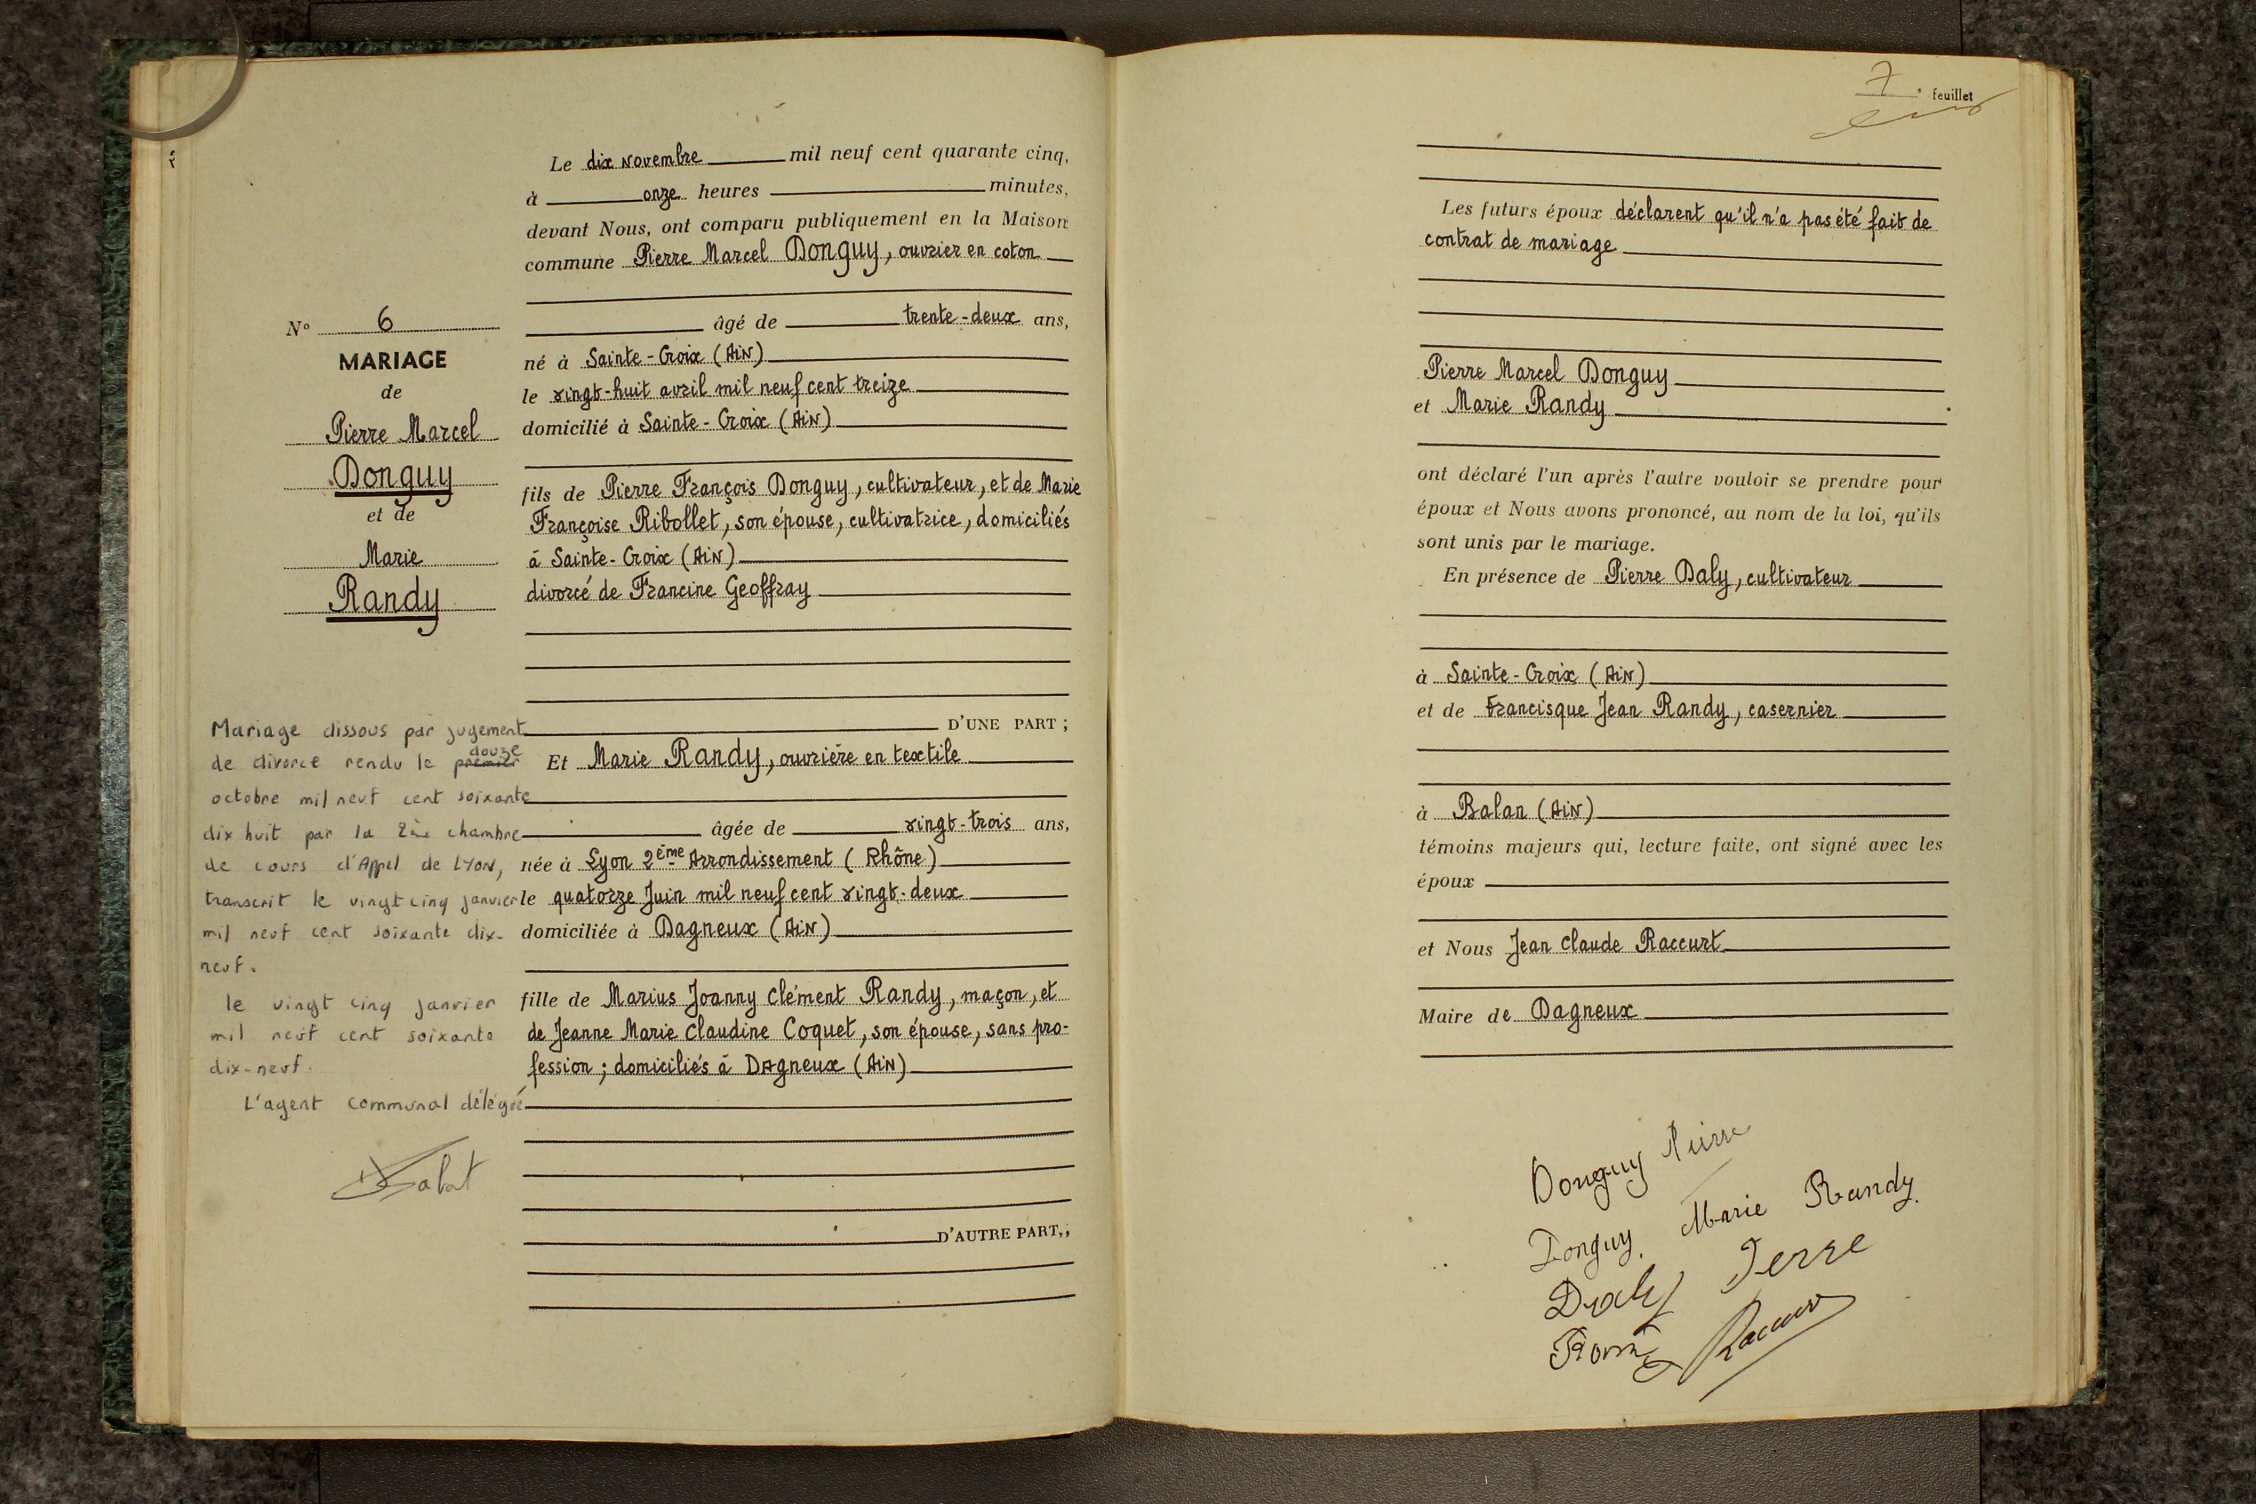 N° 6
MARIAGE
de
Pierre Marcel
Donguy
et de
Marie
Randy
Mariage dissous par jugement
de divorce rendu le premier douze
octobre mil neuf cent soixante
dix huit par la 2ème chambre
de cours d'Appel de LYON,
transcrit le vingt cinq janvier
mil neuf cent soixante dix-
neuf.
le vingt cinq janvier
mil neuf cent soixante
dix-neuf.
L'agent communal délégué
Le dix novembre mil neuf cent quarante cinq,
à onze heures minutes,
devant Nous, ont comparu publiquement en la Maison
commune Pierre Marcel Donguy, ouvrier en coton
âgé de trente-deux ans,
né à Sainte-Croix (Ain)
le vingt-huit avril mil neuf cent treize
domicilié à Sainte-Croix (Ain)
fils de Pierre François Donguy, cultivateur, et de Marie
Françoise Ribollet, son épouse, cultivatrice, domiciliés
à Sainte-Croix (Ain)
divorcé de Francine Geoffray
D'UNE PART ;
Et Marie Randy, ouvrière en textile
âgée de vingt-trois ans,
née à Lyon 2ème Arrondissement (Rhône)
le quatorze Juin mil neuf cent vingt-deux
domiciliée à Dagneux (Ain)
fille de Marius Joanny Clément Randy, maçon, et
de Jeanne Marie Claudine Coquet, son épouse, sans pro-
fession ; domiciliés à Dagneux (Ain)
D'AUTRE PART,;
7 e feuillet
Les futurs époux déclarent qu'il n'a pas été fait de
contrat de mariage
Pierre Marcel Donguy
et Marie Randy
ont déclaré l'un après l'autre vouloir se prendre pour
époux et Nous avons prononcé, au nom de la loi, qu'ils
sont unis par le mariage.
En présence de Pierre Daly, cultivateur
à Sainte-Croix (Ain)
et de Francisque Jean Randy, casernier
à Balan (Ain)
témoins majeurs qui, lecture faite, ont signé avec les
époux
et Nous Jean Claude Raccurt
Maire de Dagneux
Donguy Pierre
Donguy. Marie Randy.
Daly Pierre
Raccurt